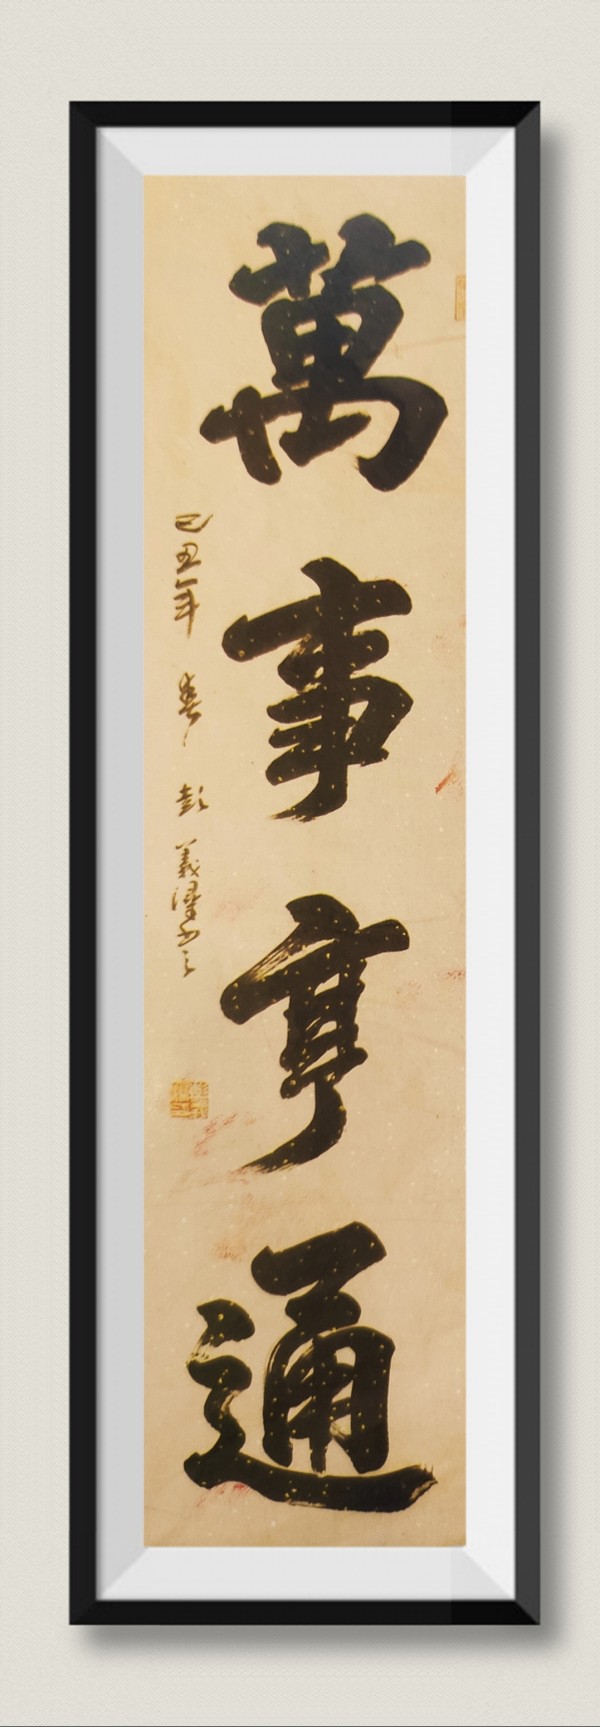 萬事亨通
己丑年 春 彭義濯書之